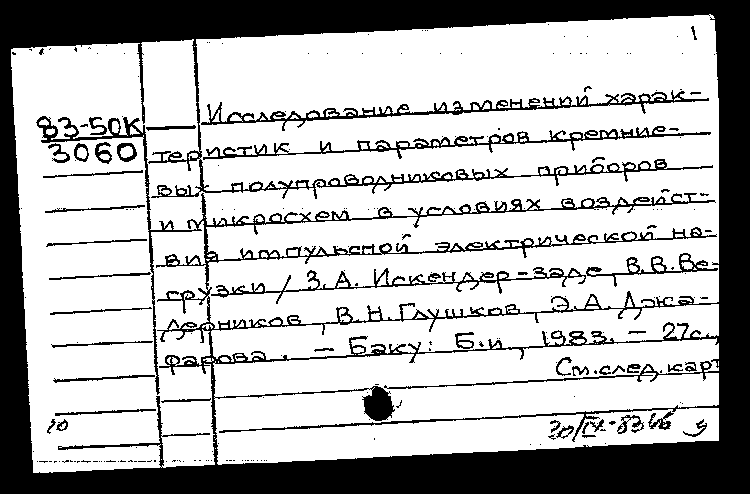 1
83-50К
3060
Исследование изменений харак-
теристик и параметров кремние-
вых полупроводниковых приборов
и микросхем в условиях воздейст-
вия импульсной электрической на-
грузки / З.А. Искендер-заде, В.В.Ве-
дерников, В.Н.Глушков, Э.А. Джа-
фарова. – Баку: Б.и, 1983. – 27с.,
См.след.карт
10
30/IX-83